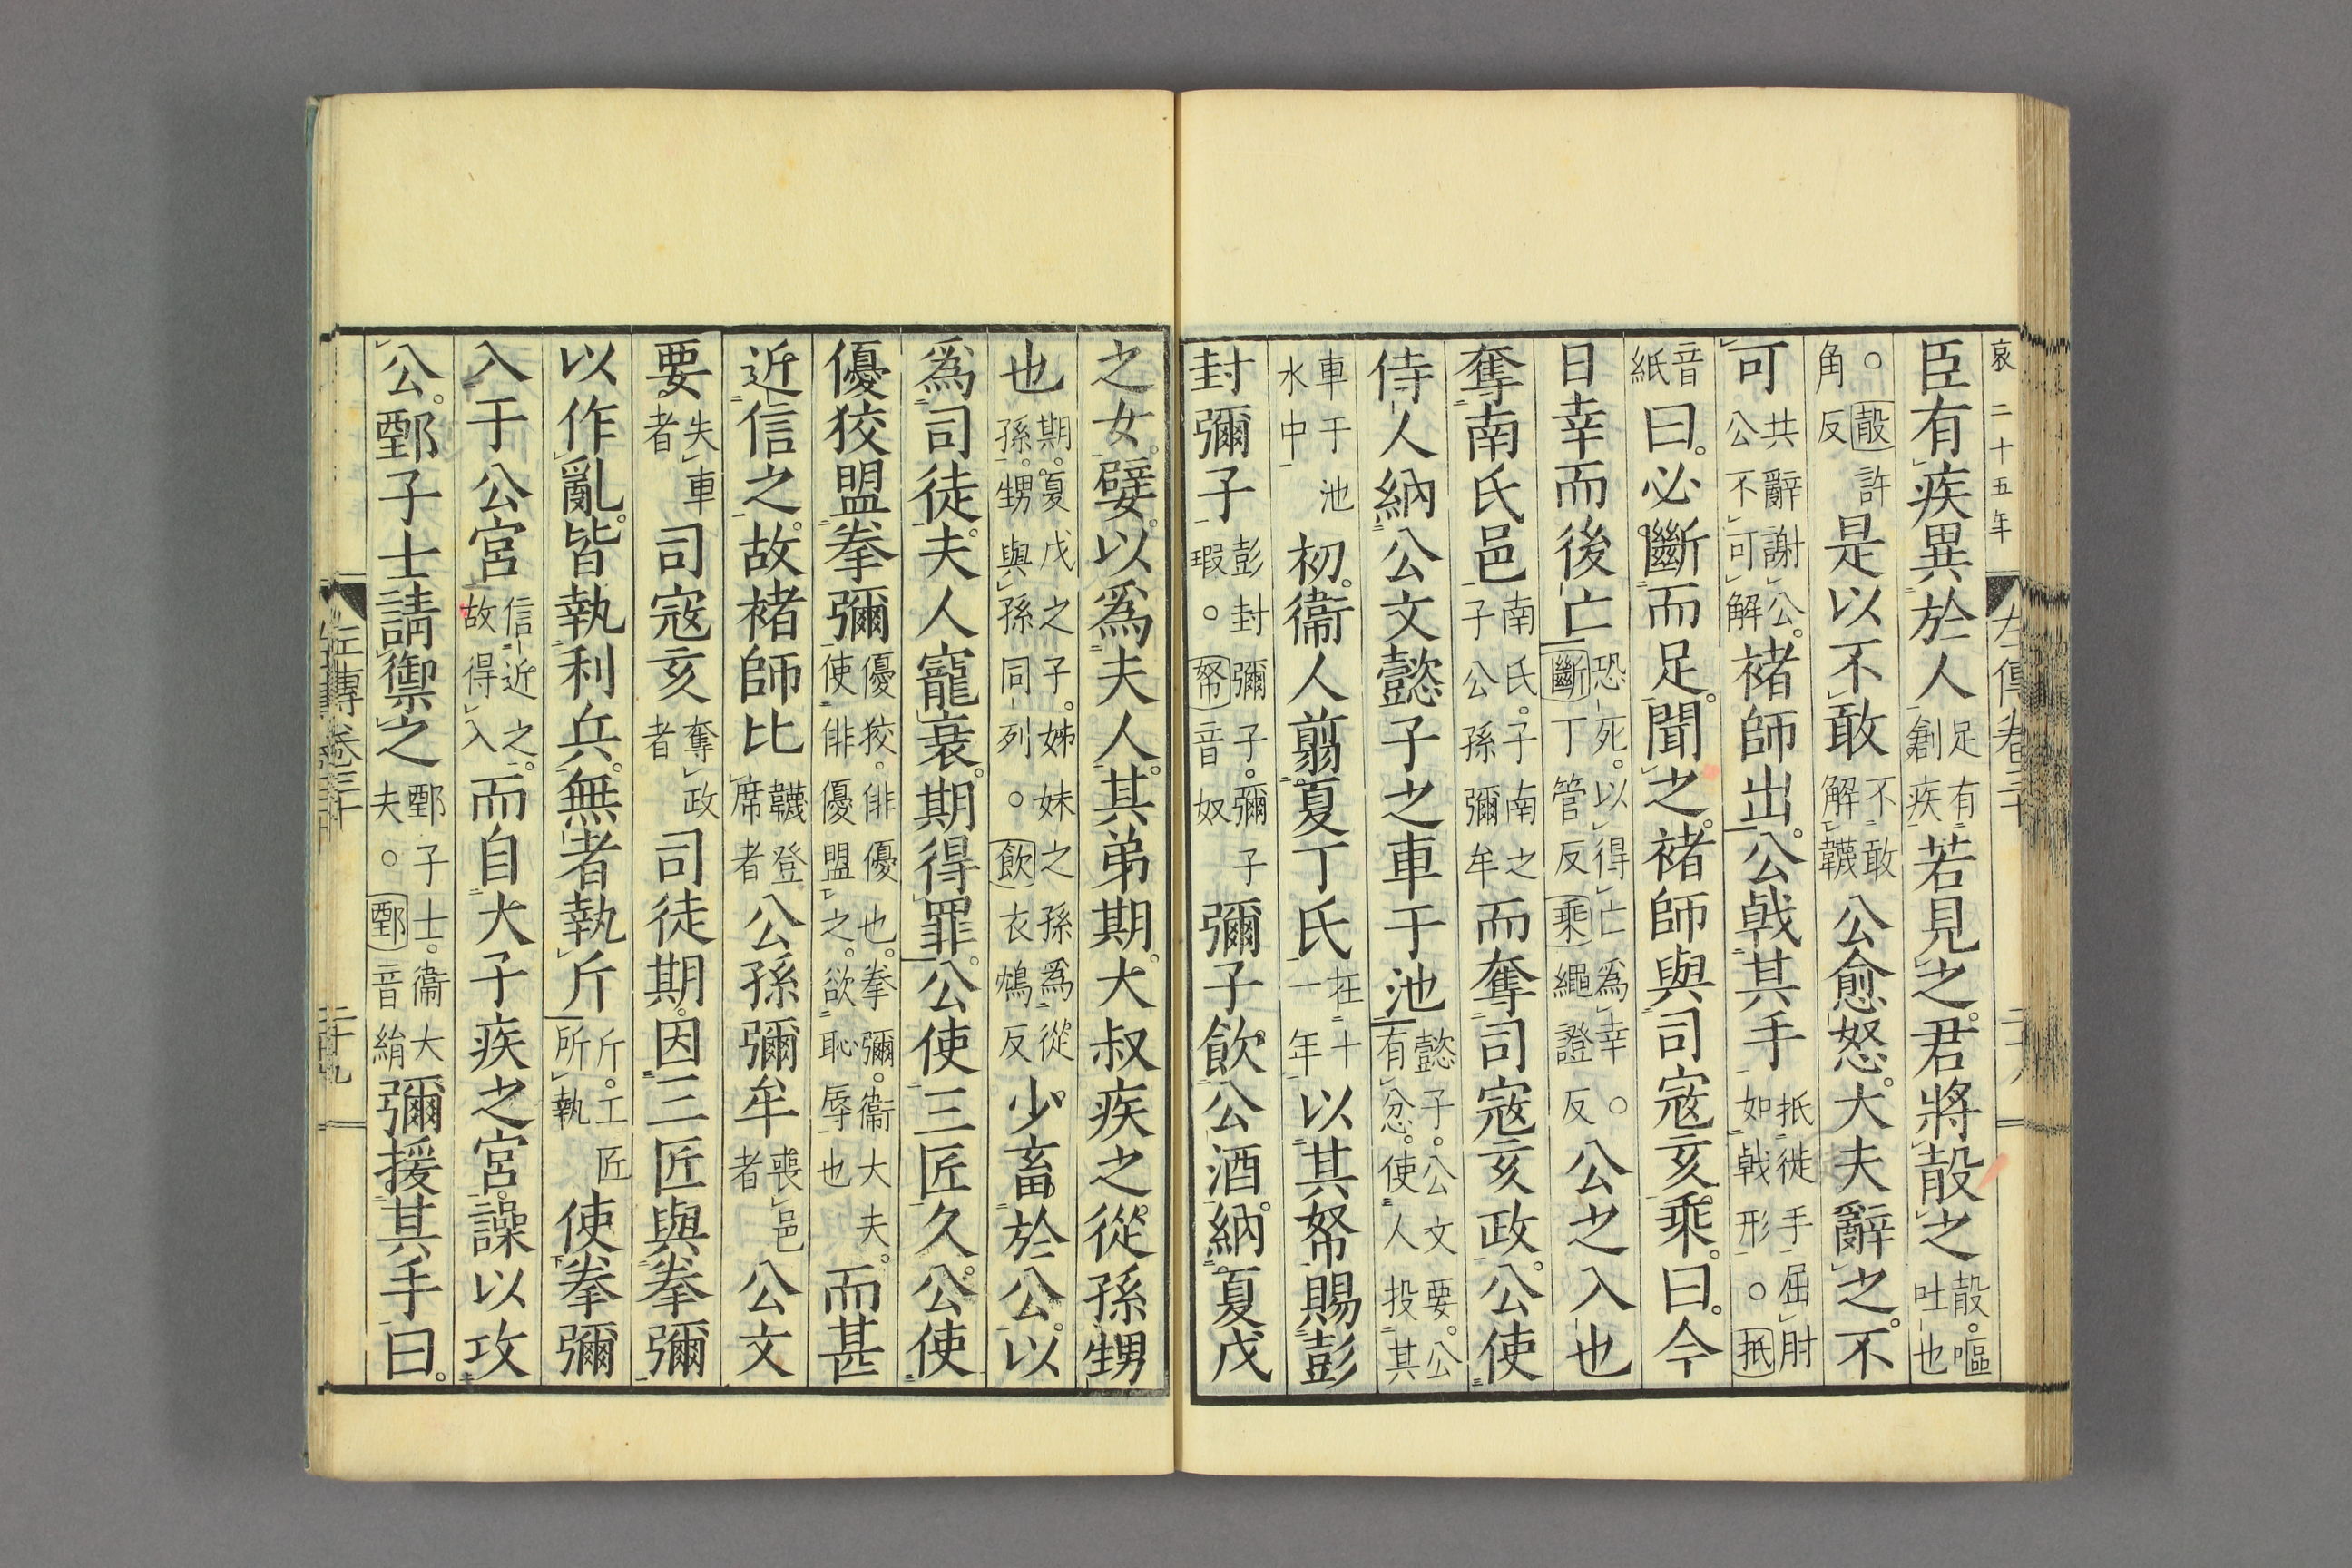 哀二十五年
左傳卷三十
臣有疾異於人足有創疾若見之君將㱿之㱿嘔吐也
○㱿許角反是以不敢不敢解韈公愈怒大夫辭之不
可共辭謝公公不可解褚師出公戟其手抵徙手屈肘如戟形○抵
音紙曰必斷而足聞之褚師與司寇亥乘曰今
日幸而後亡恐死以得亡爲幸○斷丁管反乘繩證反公之入也
奪南氏邑南氏子南之子公孫彌牟而奪司寇亥政公使
侍人納公文懿子之車于池懿子公文要公有忿使人投其
車于池水中初衞人翦夏丁氏在十一年以其帑賜彭
封彌子彭封彌子彌子瑕○帑音奴彌子飮公酒納夏戊
之女嬖以爲夫人其弟期大叔疾之從孫甥
也期夏戊之子姊妹之孫爲從孫甥與孫同列○飮衣鴆反少畜於公以
爲司徒夫人寵衰期得罪公使三匠久公使
優狡盟拳彌優狡俳優也拳彌衞大夫使俳優盟之欲恥辱也而甚
近信之故褚師比韈登席者公孫彌牟喪邑者公文
要失車者司寇亥奪政者司徒期因三匠與拳彌
以作亂皆執利兵無者執斤斤工匠所執使拳彌
入于公宮信近之故得入而自大子疾之宮譟以攻
公鄄子士請禦之鄄子士衞大夫○鄄音絹彌援其手曰
左傳卷三十
二十九